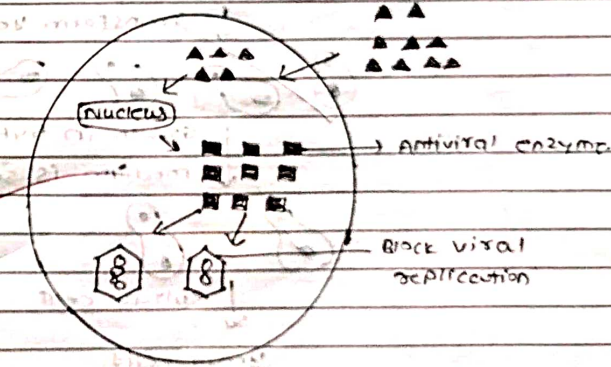 Nucleus
Antiviral enzyme
Block viral
replication